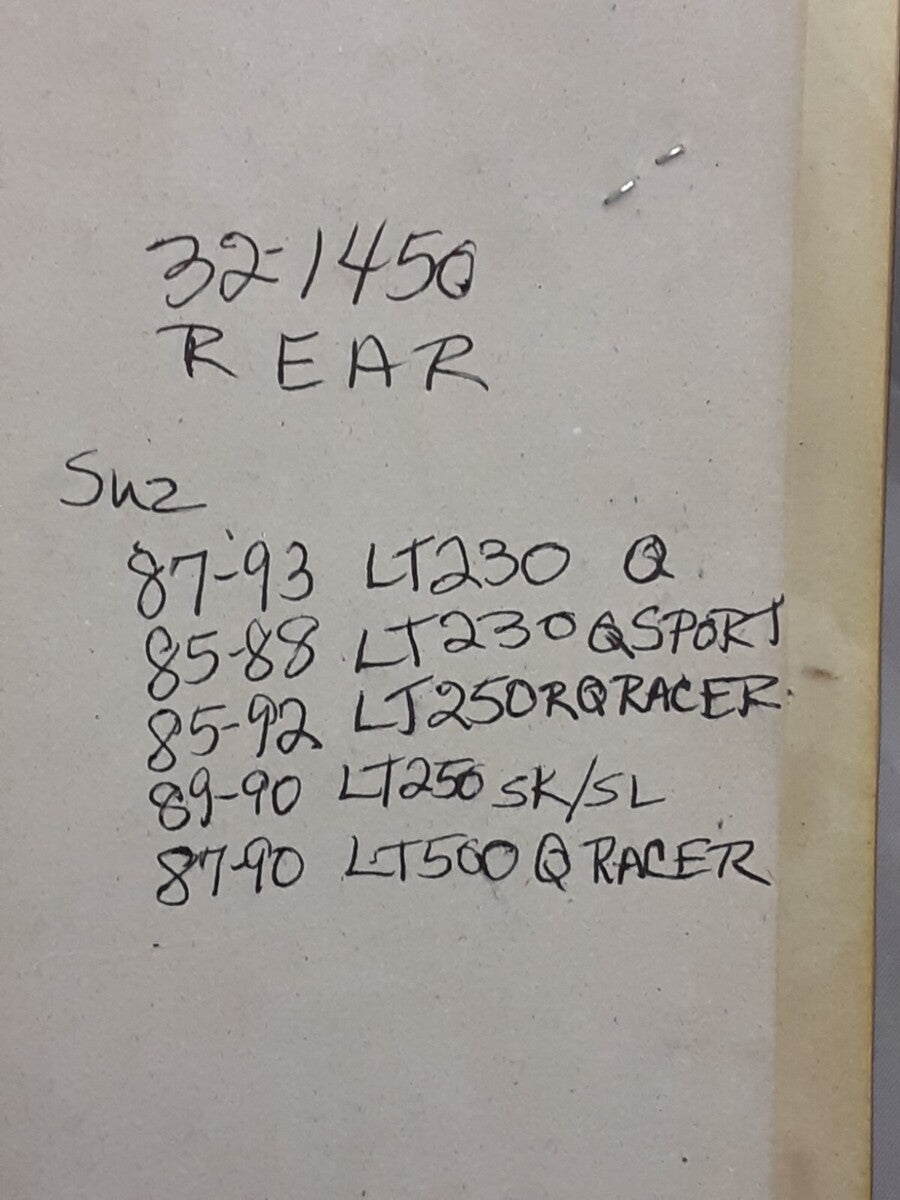 32-1450
REAR
Suz
87-93 LT230 Q
85-88 LT230 QSPORT
85-92 LT250R QRACER
89-90 LT250 SK/SL
87-90 LT500 Q RACER